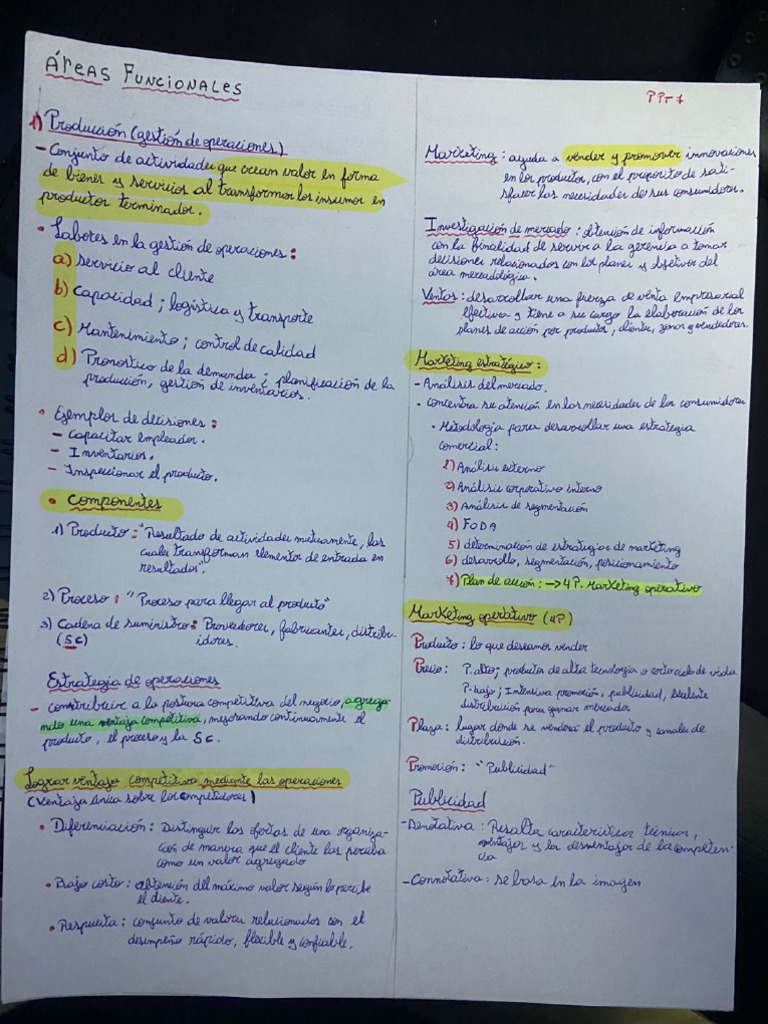 ÁREAS FUNCIONALES
1) Producción (gestión de operaciones)
- Conjunto de actividades que crean valor en forma
de bienes y servicios al transformar los insumos en
productos terminados.
• Labores en la gestión de operaciones:
a) servicio al cliente
b) Capacidad ; logística y transporte
c) Mantenimiento ; control de calidad
d) Pronostico de la demanda ; planificación de la
producción, gestión de inventarios.
• Ejemplos de decisiones:
- Capacitar empleados.
- Inventarios.
- Inspeccionar el producto.
• Componentes
1) Producto: "Resultado de actividades mutuamente, las
cuales transforman elementos de entrada en
resultados".
2) Proceso: "Proceso para llegar al producto"
3) Cadena de suministro: Proveedores, fabricantes, distribu-
(SC) idores.
Estrategia de operaciones
- contribuir a la postura competitiva del negocio, agrega-
ndo una ventaja competitiva, mejorando continuamente el
producto, el proceso y la SC.
Lograr ventaja competitiva mediante las operaciones
(Ventaja única sobre los competidores)
• Diferenciación: Distinguir las ofertas de una organiza-
ción de manera que el cliente las perciba
como un valor agregado
• Bajo costo: obtención del máximo valor según lo percibe
el cliente.
• Respuesta: conjunto de valores relacionados con el
desempeño rápido, flexible y confiable.
PPT 7
Marketing: ayuda a vender y promover innovaciones
en los productos, con el proposito de sati-
sfacer las necesidades de sus consumidores.
Investigación de mercado: obtención de información
con la finalidad de servir a la gerencia a tomar
decisiones relacionados con los planes y objetivos del
área mercadológica.
Ventas: desarrollar una fuerza de venta empresarial
efectiva y tiene a su cargo la elaboración de los
planes de acción por productos, clientes, zonas y vendedores.
Marketing estratégico:
- Análisis del mercado.
- concentra su atención en las necesidades de los consumidores
• Metodología para desarrollar una estrategia
comercial:
1) Análisis externo
2) Análisis corporativo interno
3) Análisis de segmentación
4) FODA
5) determinación de estrategias de marketing
6) desarrollo, segmentación, posicionamiento
7) Plan de acción: → 4P. Marketing operativo
Marketing operativo (4P)
Producto: lo que deseamos vender
Precio: P. alto; productos de alta tecnología o corto ciclo de vida
P. bajo; Intensiva promoción, publicidad, excelente
distribución para ganar mercados
Plaza: lugar donde se venderá el producto y canales de
distribución.
Promoción: "Publicidad"
Publicidad
- Denotativa: Resalta características técnicas,
ventajas y las desventajas de la competen-
cia
- Connotativa: se basa en la imagen